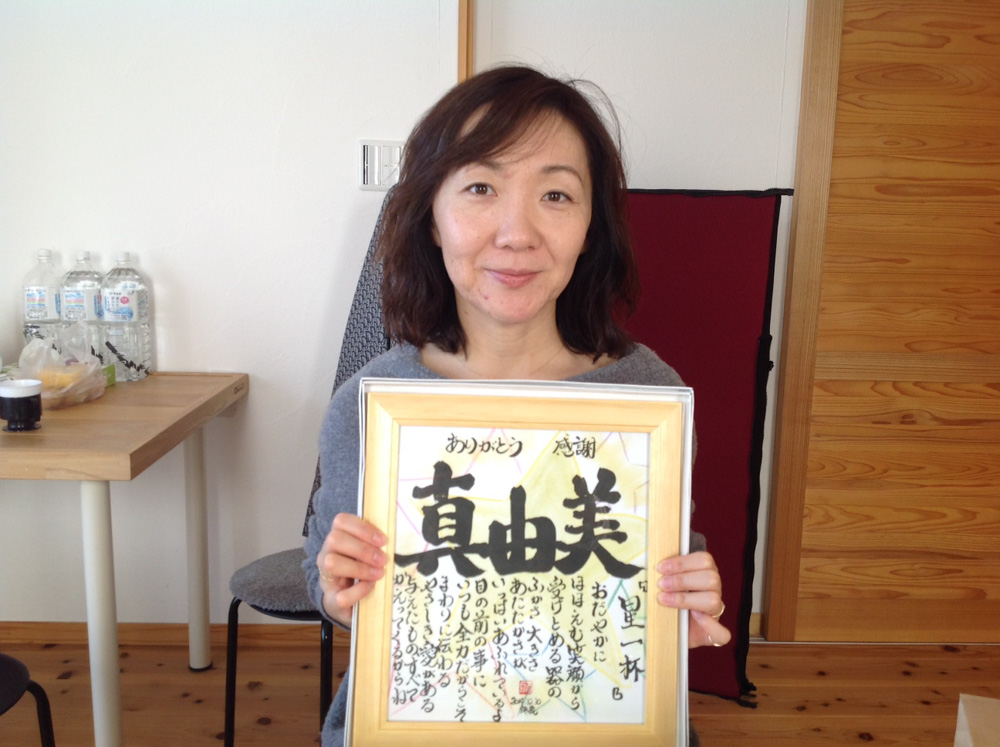 ありがとう 感謝
真由美
おだやかに
ほほえむ笑顔から
受けとめる器の
ふかさ 大きさ
あたたかさが
いっぱいあふれているよ
目の前の事に
いつも全力だからこそ
まわりに伝わる
やさしさ愛がある
与えたものすべて
かえってくるからね